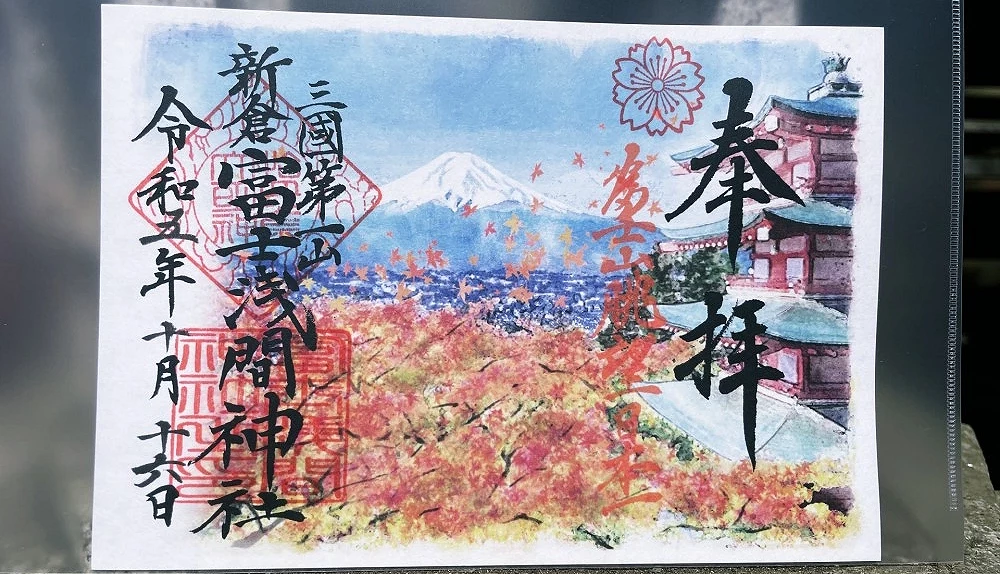 奉拝
富士山眺望
三國第一山
新倉富士浅間神社
令和五年十月十六日